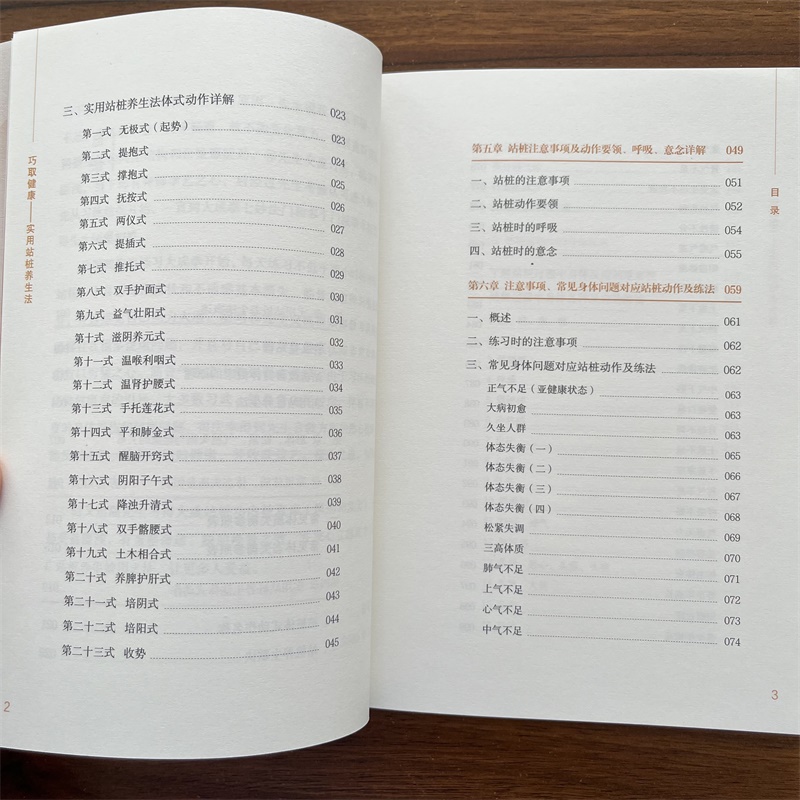 巧取健康——实用站桩养生法
三、实用站桩养生法体式动作详解 023
第一式 无极式(起势) 023
第二式 提抱式 024
第三式 撑抱式 025
第四式 抚按式 026
第五式 两仪式 027
第六式 提插式 028
第七式 推托式 029
第八式 双手护面式 030
第九式 益气壮阳式 031
第十式 滋阴养元式 032
第十一式 温喉利咽式 033
第十二式 温肾护腰式 034
第十三式 手托莲花式 035
第十四式 平和肺金式 036
第十五式 醒脑开窍式 037
第十六式 阴阳子午式 038
第十七式 降浊升清式 039
第十八式 双手髂腰式 040
第十九式 土木相合式 041
第二十式 养脾护肝式 042
第二十一式 培阴式 043
第二十二式 培阳式 044
第二十三式 收势 045
2
目录
第五章 站桩注意事项及动作要领、呼吸、意念详解 049
一、站桩的注意事项 051
二、站桩动作要领 052
三、站桩时的呼吸 054
四、站桩时的意念 055
第六章 注意事项、常见身体问题对应站桩动作及练法 059
一、概述 061
二、练习时的注意事项 062
三、常见身体问题对应站桩动作及练法 062
正气不足(亚健康状态) 063
大病初愈 063
久坐人群 063
体态失衡(一) 065
体态失衡(二) 066
体态失衡(三) 067
体态失衡(四) 068
松紧失调 069
三高体质 070
肺气不足 071
上气不足 072
心气不足 073
中气不足 074
3